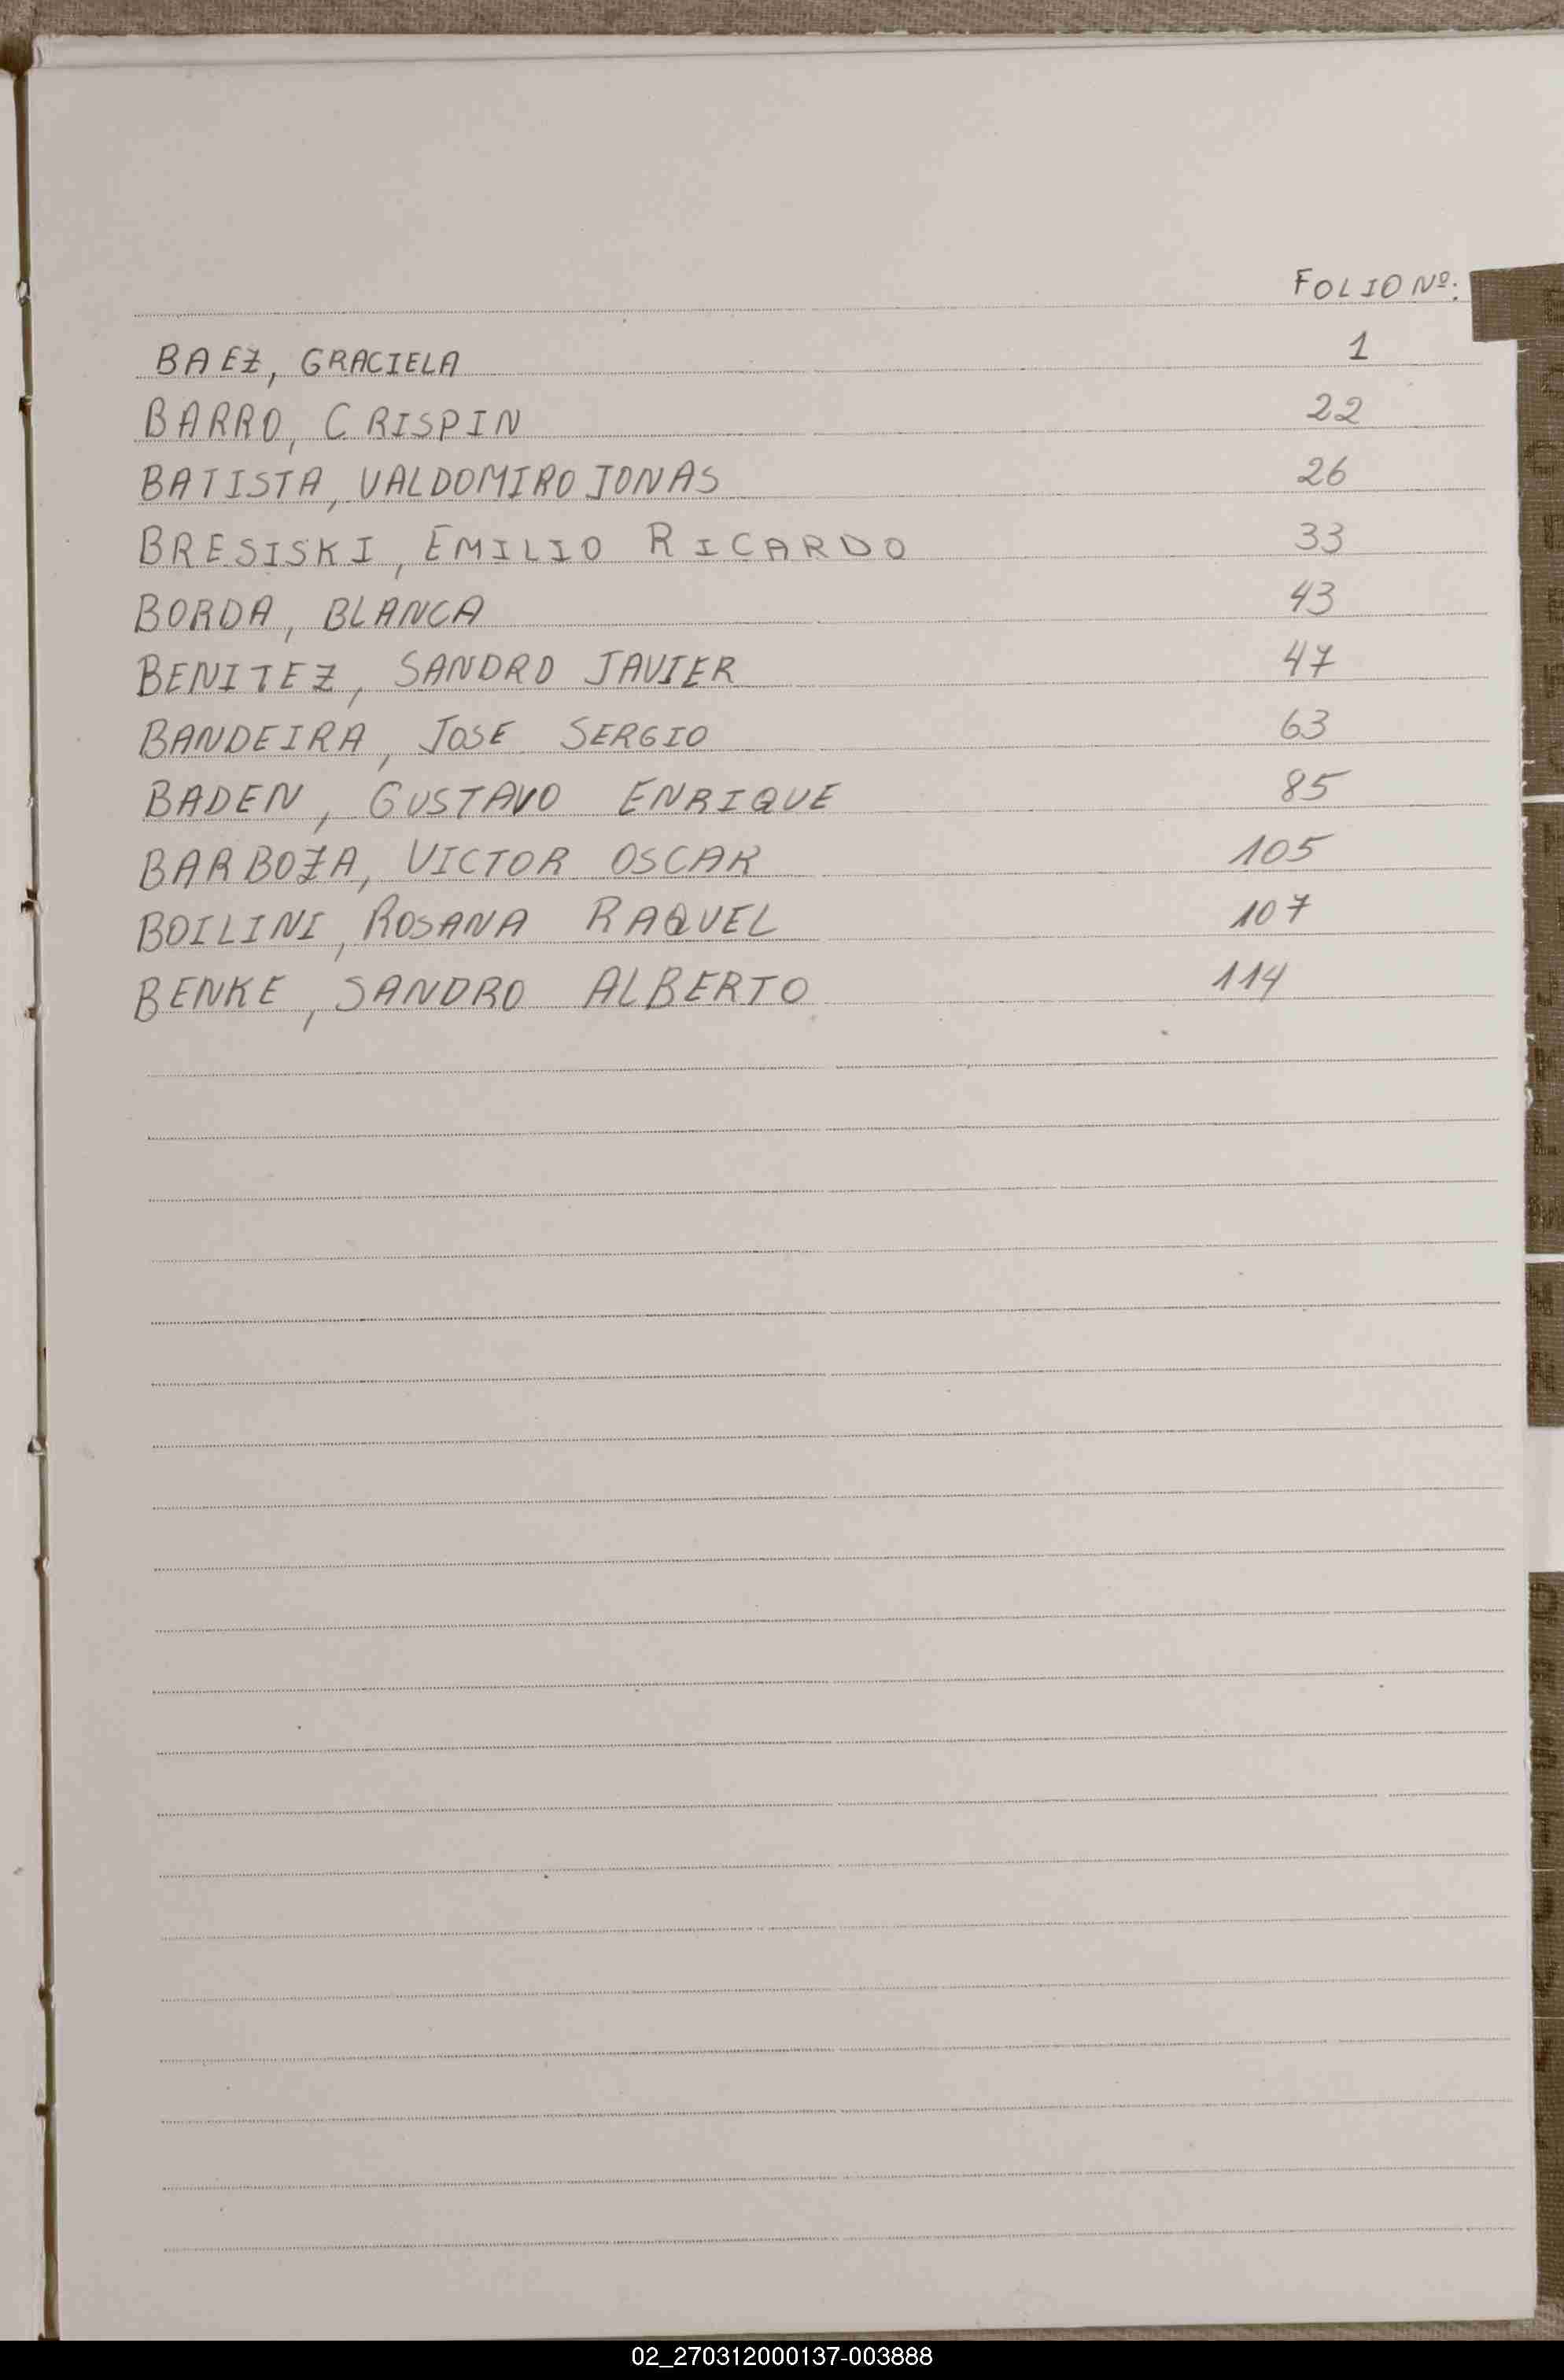 FOLIO Nº:
BAEZ, GRACIELA 1
BARRO, CRISPIN 22
BATISTA, VALDOMIRO JONAS 26
BRESISKI, EMILIO RICARDO 33
BORDA, BLANCA 43
BENITEZ, SANDRO JAVIER 47
BANDEIRA, JOSE SERGIO 63
BADEN, GUSTAVO ENRIQUE 85
BARBOZA, VICTOR OSCAR 105
BOILINI, ROSANA RAQUEL 107
BENKE, SANDRO ALBERTO 114
02_270312000137-003888